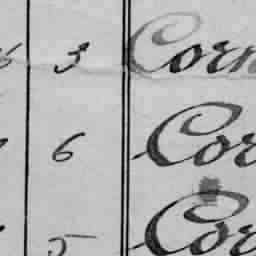 3 Corn
6 Cor
5 Cor